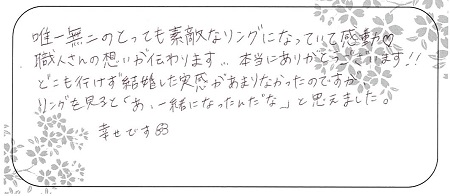 唯一無二のとっても素敵なリングになっていて感動♡
職人さんの想いが伝わります... 本当にありがとうございます!!
どこも行けず結婚した実感があまりなかったのですが、
リングを見ると「あ、一緒になったんだな。」と思えました。
幸せです☺